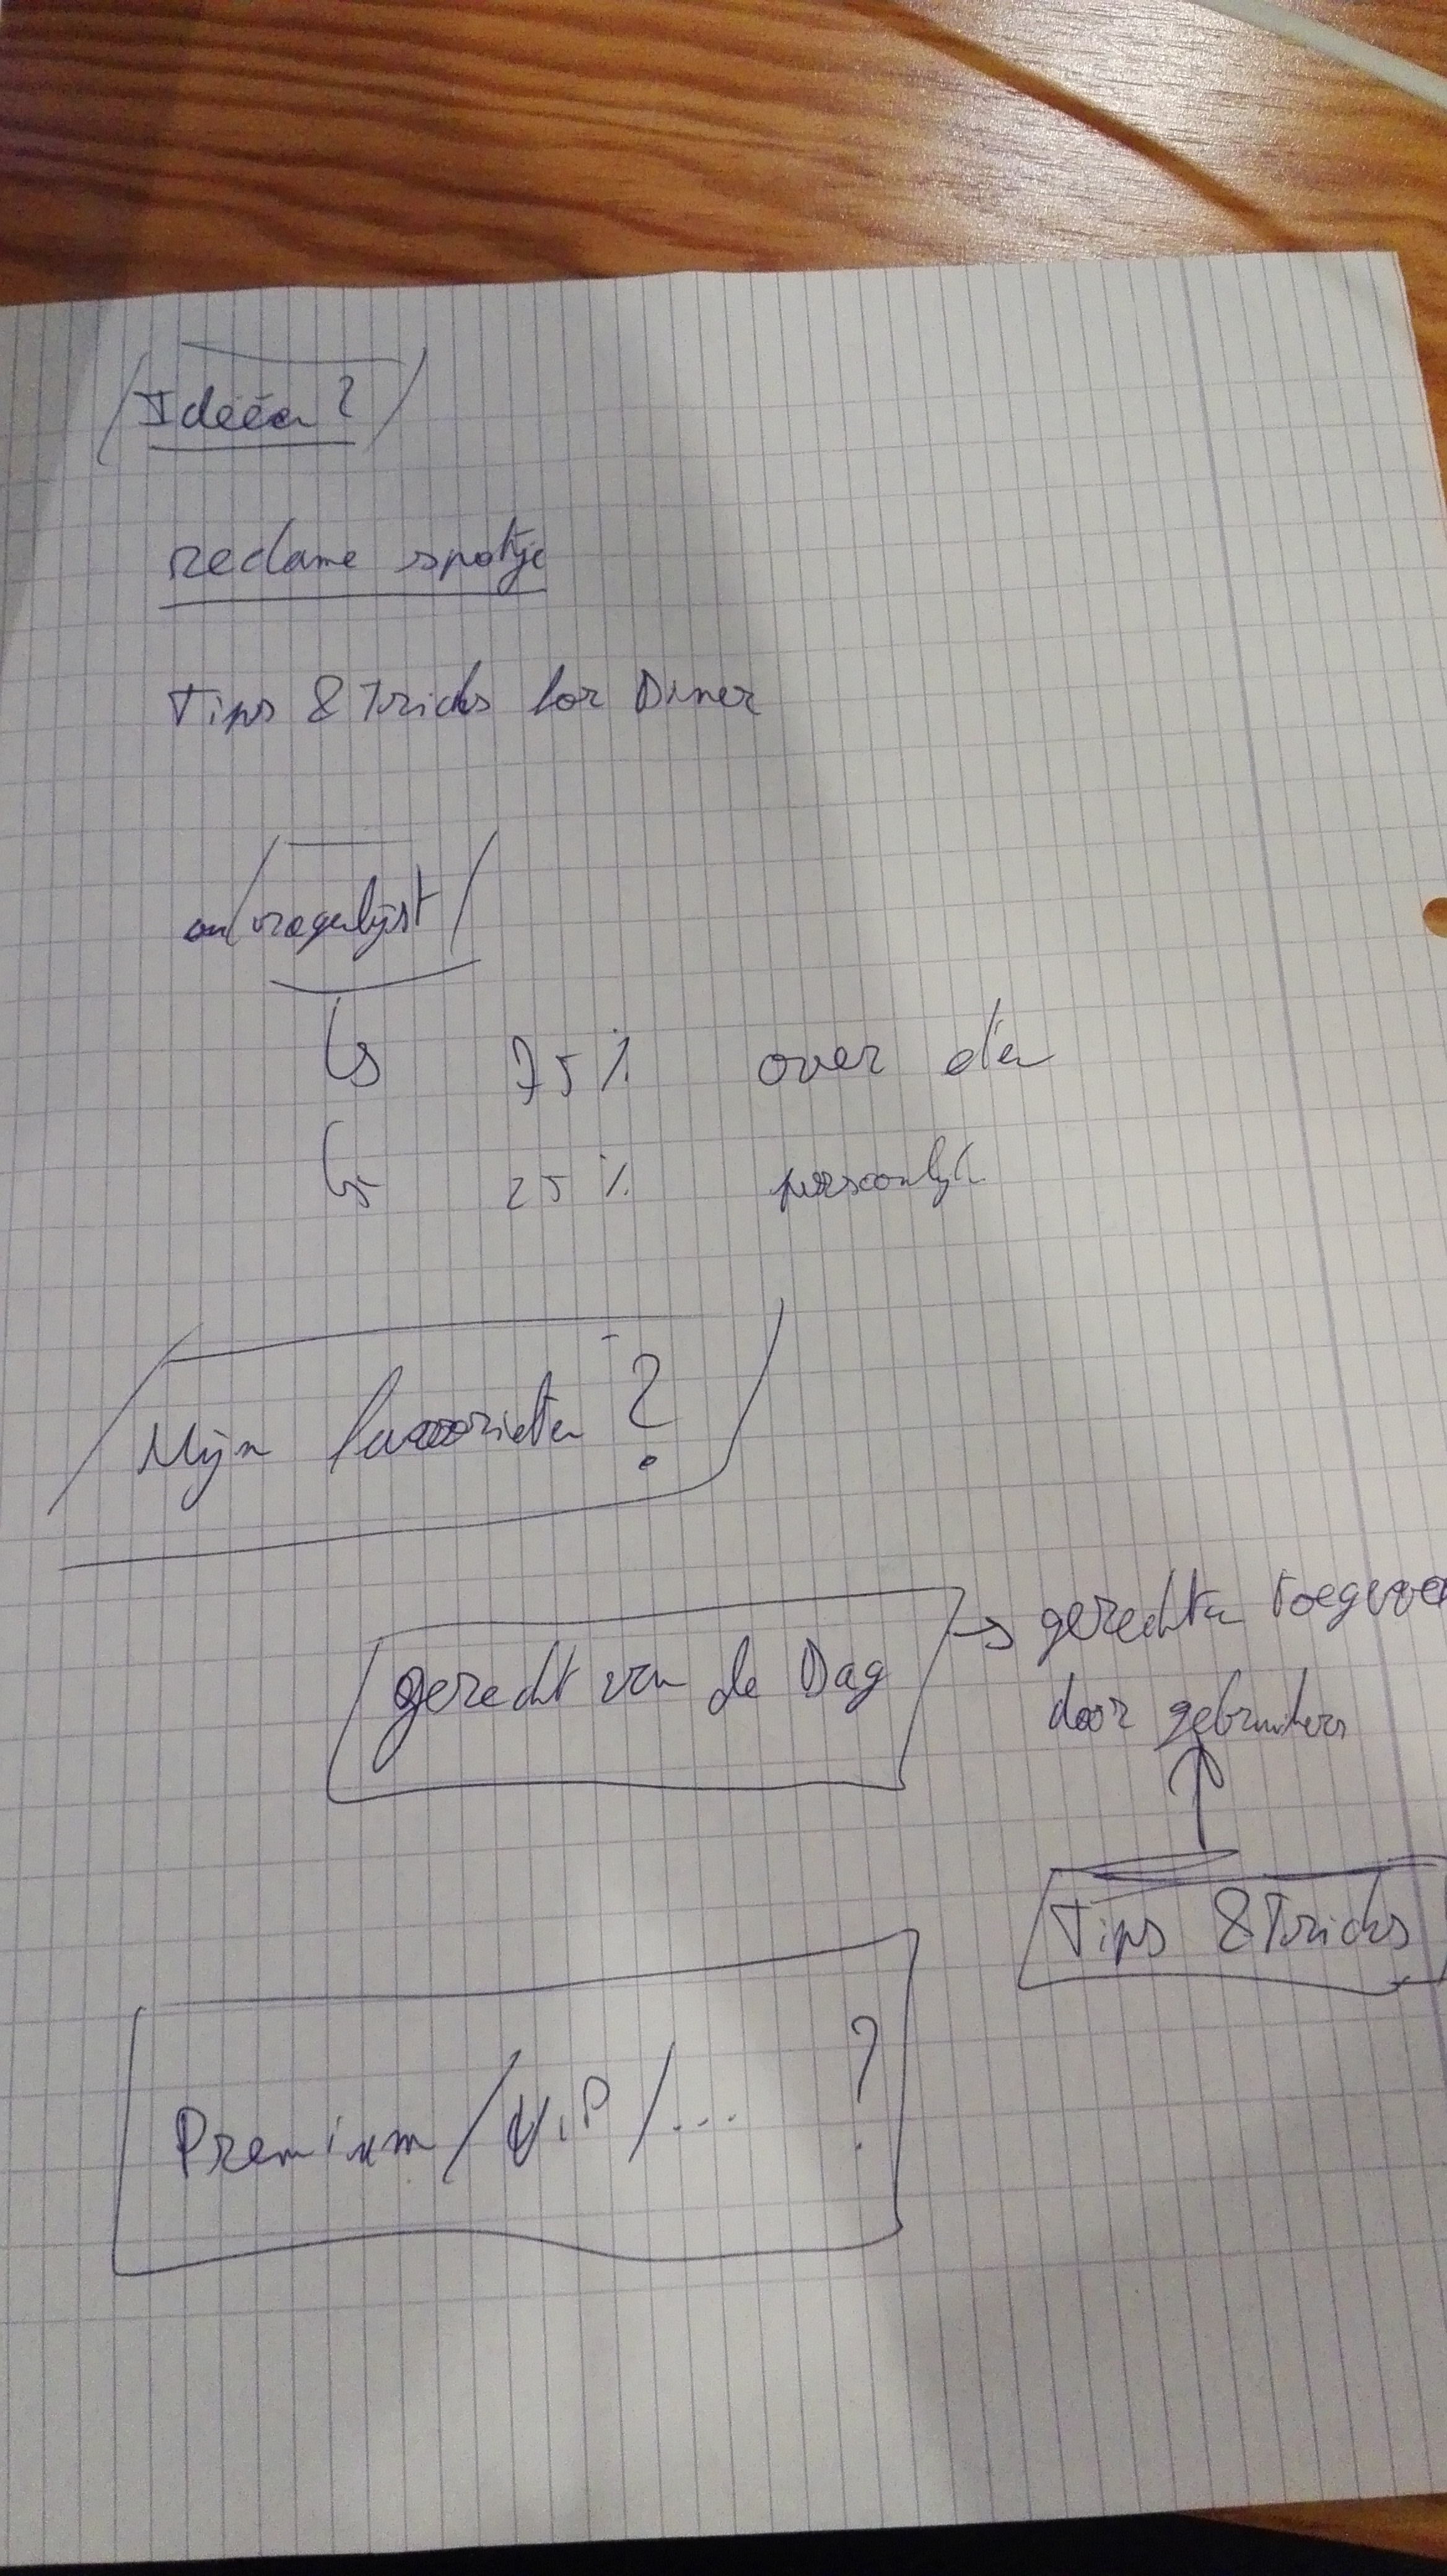 Ideeën?
reclame spotje
Tips & Tricks for Diner
vragenlijst
↳ 75% over
↳ 25% persoonlijk
Mijn favorieten?
gerecht van de Dag → gerechten
door gebruikers
Tips & Tricks
Premium / V.I.P / ... ?